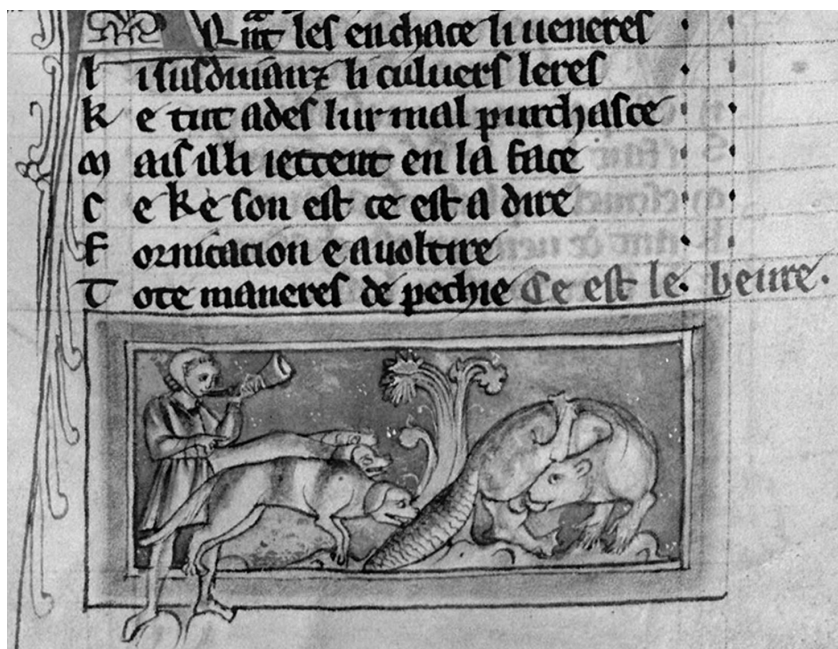 les enchace li ueneres
l i susduianz li culuers leres
k e tut ades lur mal purchasce
m ais il li iettent en la face
c e ke son est ce est a dire
f ornicacion e auoltire
T ote maneres de pechie Ce est le beure.